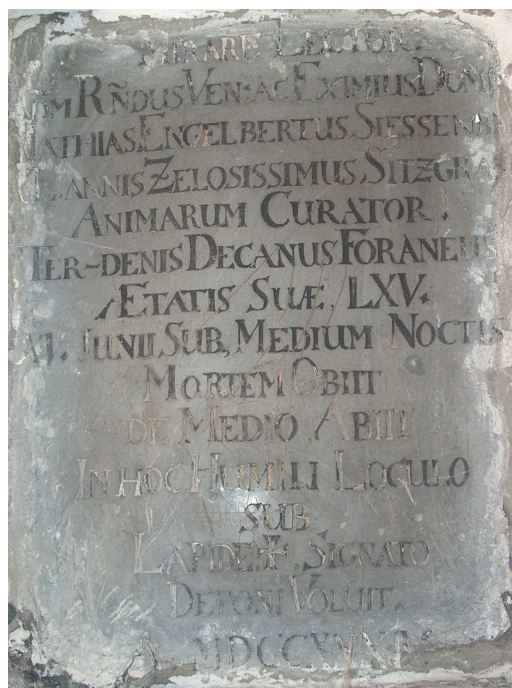 MIRARE LECTOR.
RÑDUS VEN: AC EXIMIUS DOMI
MATHIAS ENGELBERTUS SIESSEN
ANNIS ZELOSISSIMUS SITZGRA
ANIMARUM CURATOR.
TER-DENIS DECANUS FORANEUS
ÆTATIS SUÆ, LXV.
JUNII SUB, MEDIUM NOCTIS
MORTEM OBIIT
DE MEDIO ABIIT
IN HOC HUMILI LOCULO
SUB
LAPIDE ✠. SIGNATO
DEPONI VOLUIT.